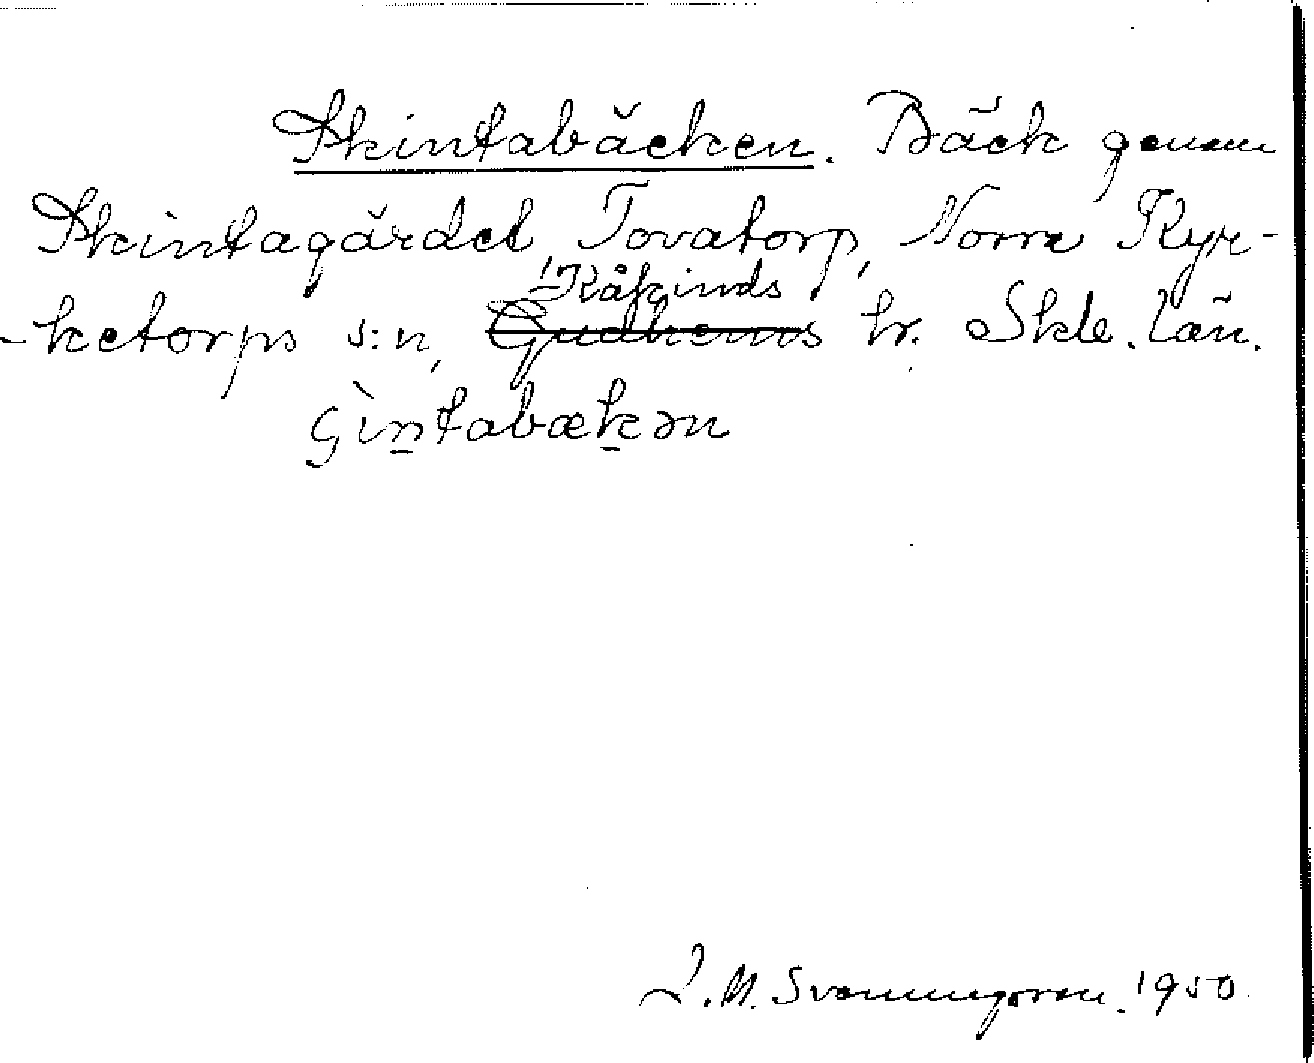 Skintabäcken. Bäck genom
Skintagärdet, Tovatorp, Norra Kyr-
-ketorps s:n, Kåkinds
Gudhems hr. Skbg. län.
çìntabækən
J. M. Svenungsson. 1950